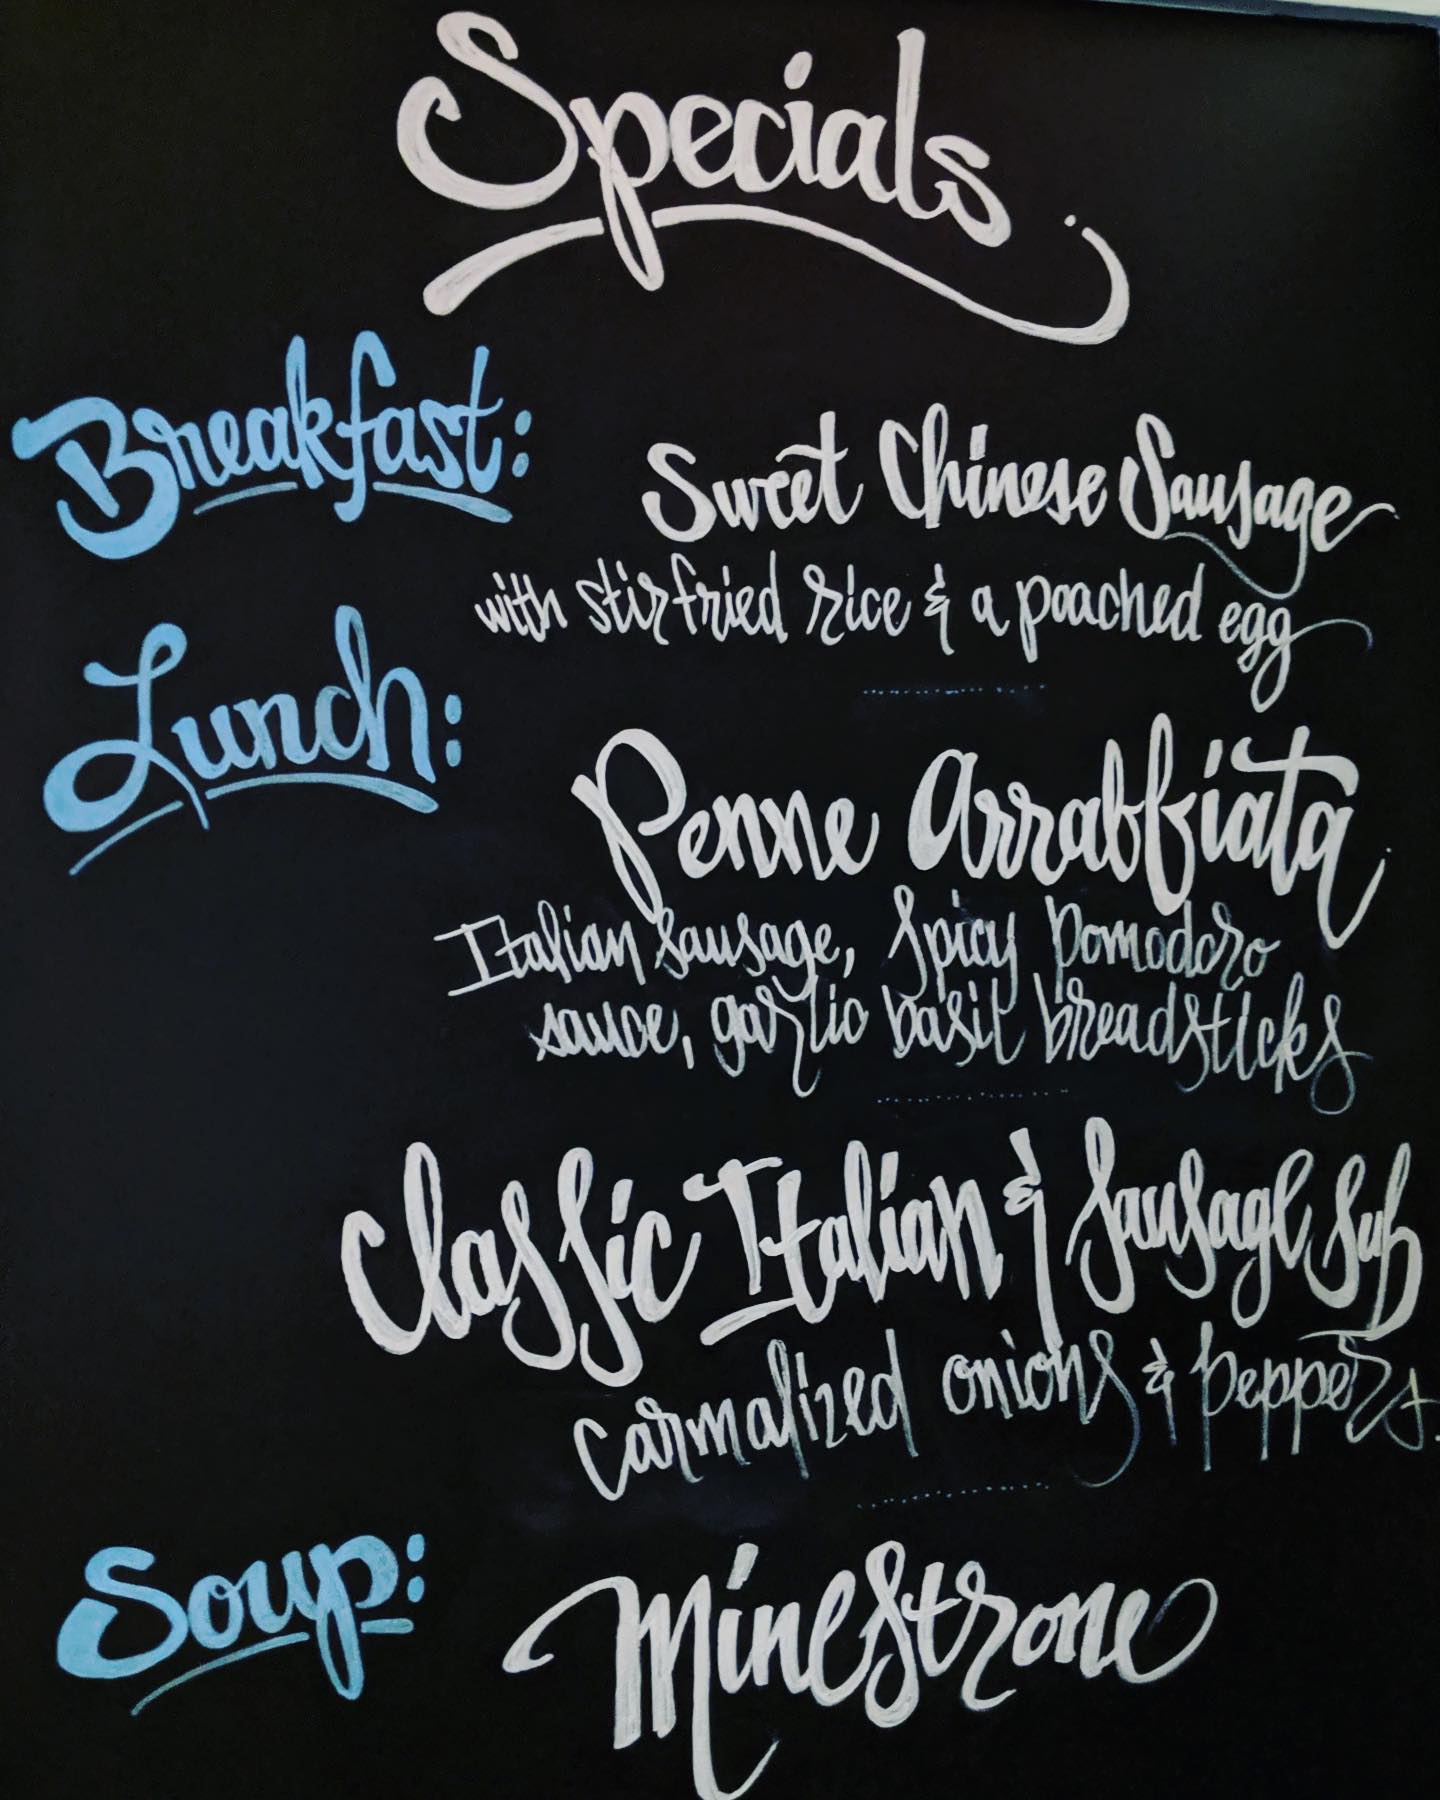 Specials
Breakfast:
Sweet Chinese Sausage
with stir fried rice & a poached egg
Lunch:
Penne Arrabbiata
Italian sausage, spicy pomodoro
sauce, garlic basil breadsticks
Classic Italian & Sausage Sub
carmalized onions & peppers.
Soup:
Minestrone